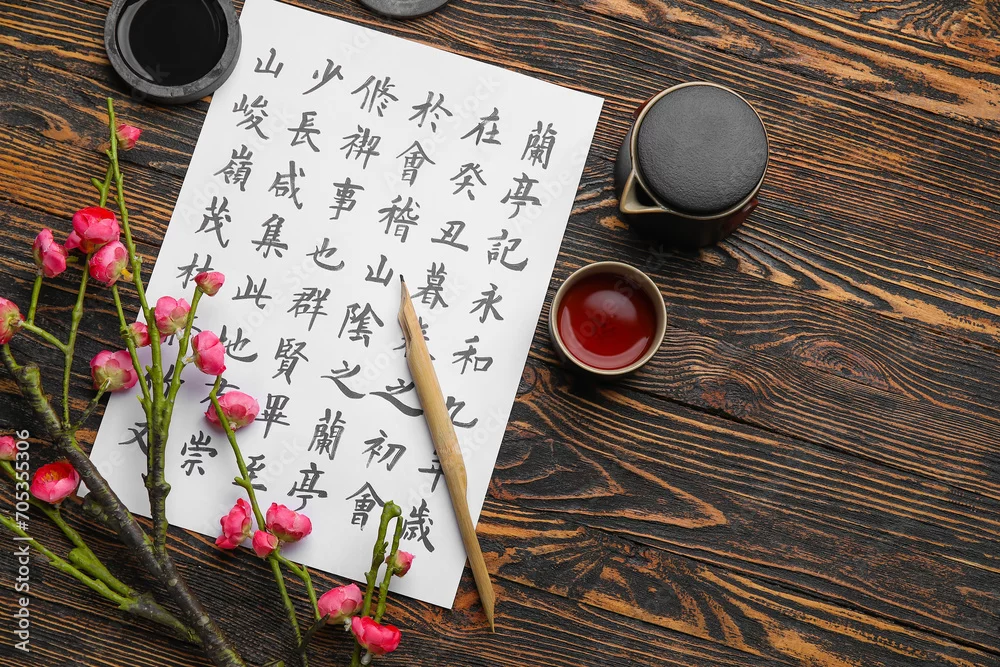 蘭亭記永和九年歲
在癸丑暮春之初會
於會稽山陰之蘭亭
脩禊事也群賢畢至
少長咸集此地崇
山峻嶺茂林又
Adobe Stock | #705355306